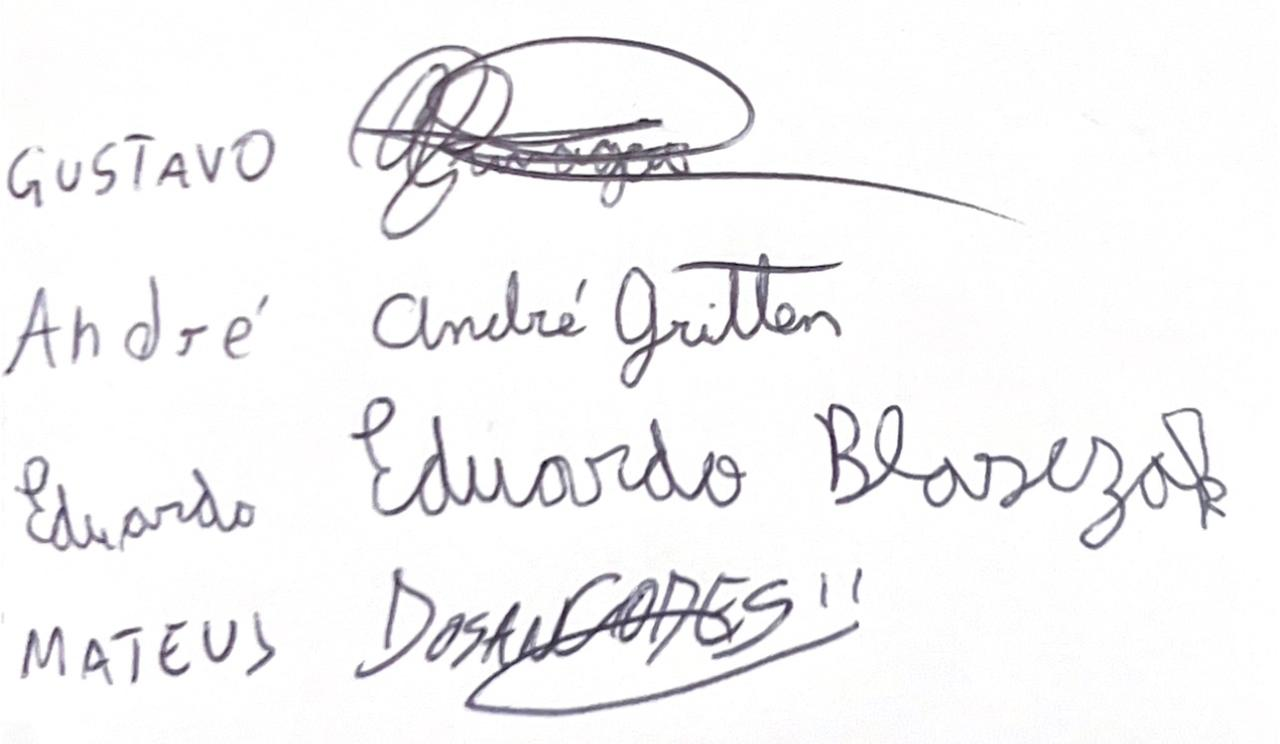 GUSTAVO
André André Gritten
Eduardo Eduardo Blaszczak
MATEUS